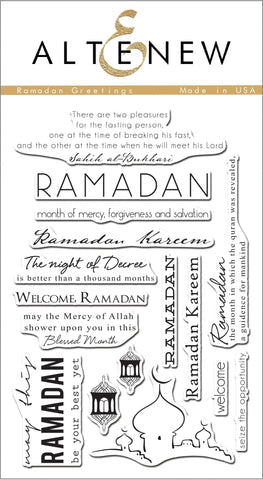 ALTENEW
Ramadan Greetings Made in USA
There are two pleasures
for the fasting person,
one at the time of breaking his fast,
and the other at the time when he will meet his Lord
Sahih al-Bukhari
RAMADAN
month of mercy, forgiveness and salvation
Ramadan Kareem
The night of Decree
is better than a thousand months
WELCOME RAMADAN
may the Mercy of Allah
shower upon you in this
Blessed Month
may this
RAMADAN
be your best yet
RAMADAN
Ramadan Kareem
Ramadan
the month in which the quran was revealed,
a guidance for mankind
welcome
seize the opportunity